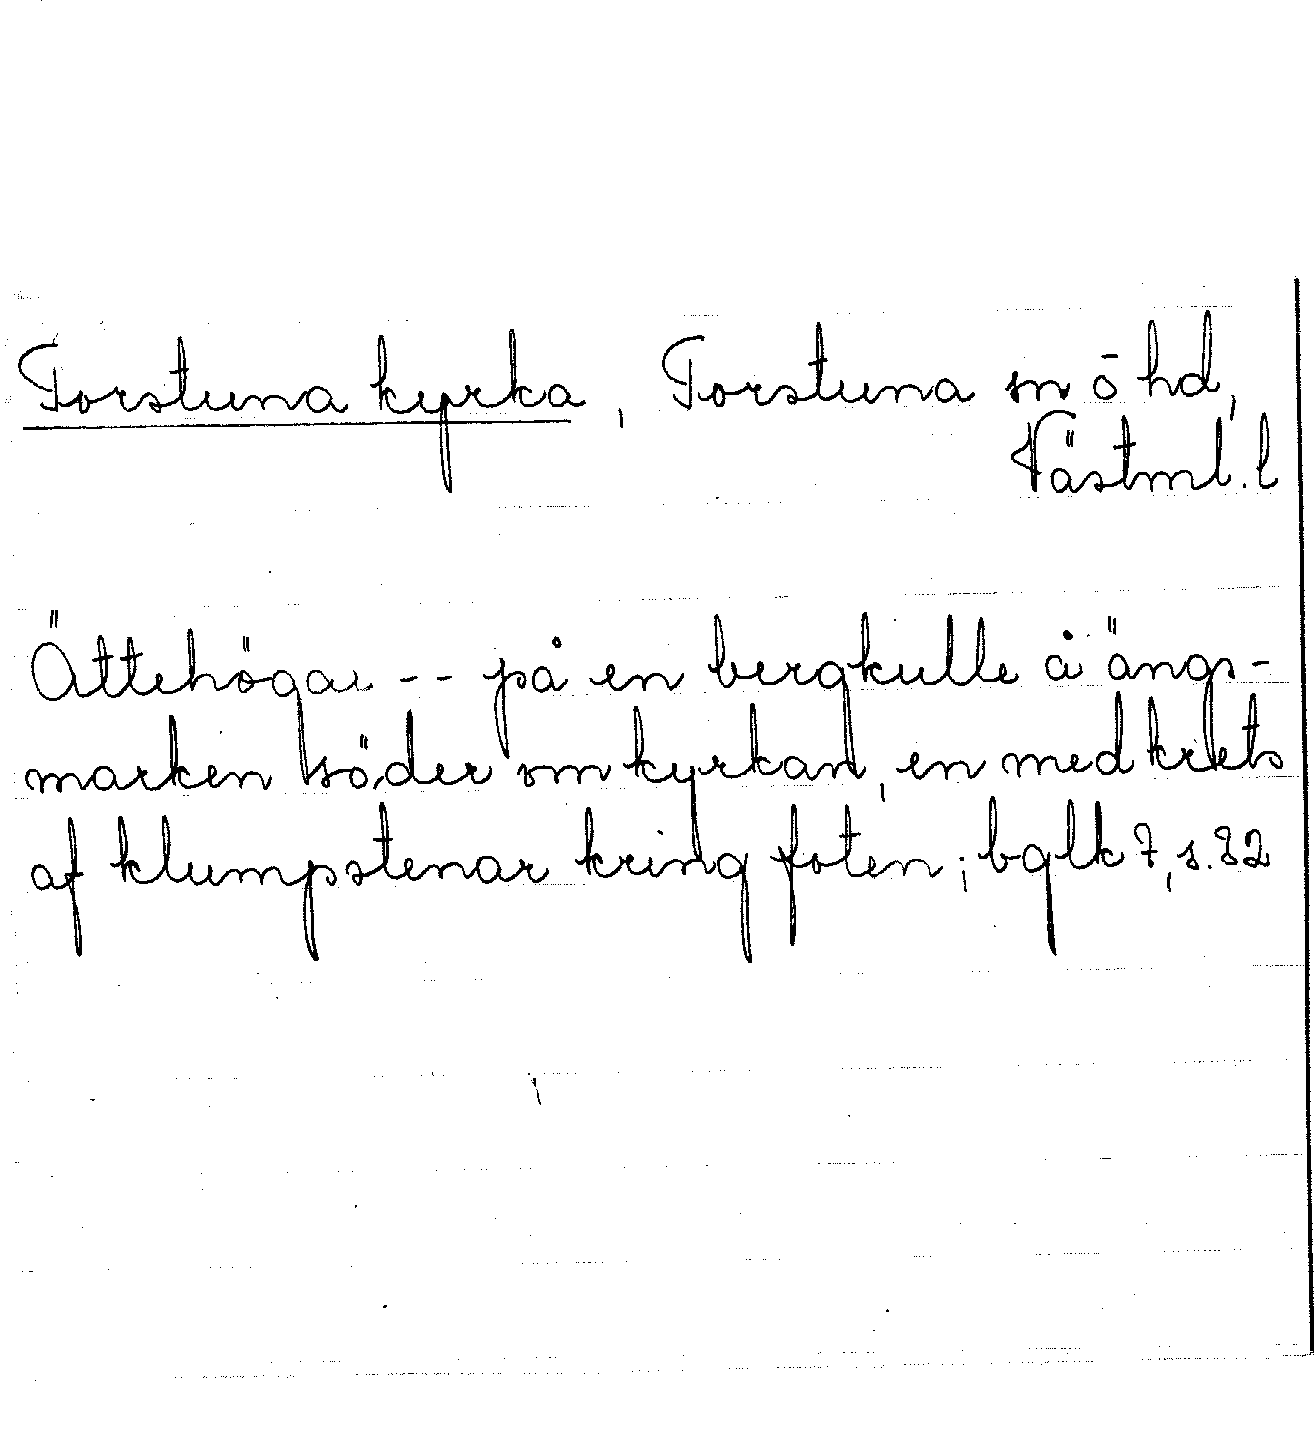 Torstuna kyrka, Torstuna sn ō hd,
Västml. l
Ättehögar -- på en bergkulle å ängs-
marken söder om kyrkan, en med krets
af klumpstenar kring foten; bglk 7, s. 32